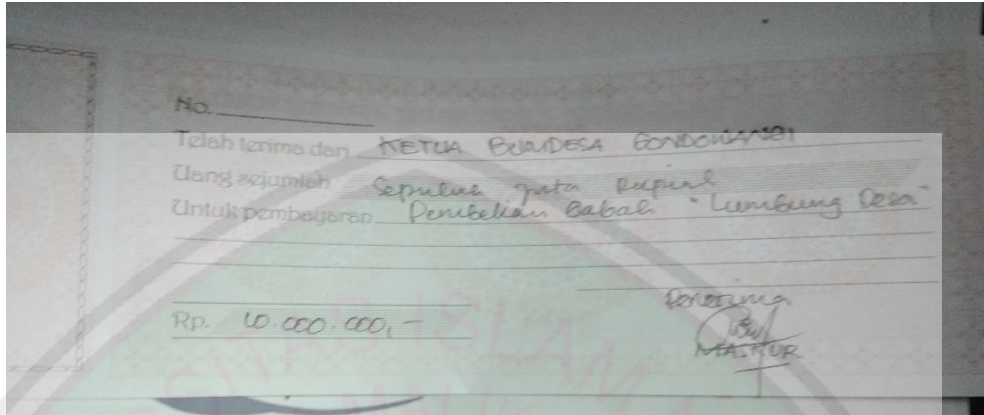 No.
Telah terima dari KETUA BUMDESA GONDOWANGI
Uang sejumlah Sepuluh juta Rupiah
Untuk pembayaran Pembelian Gabah "Lumbung Desa"
Penerima
Rp. 10.000.000,-
MASKUR